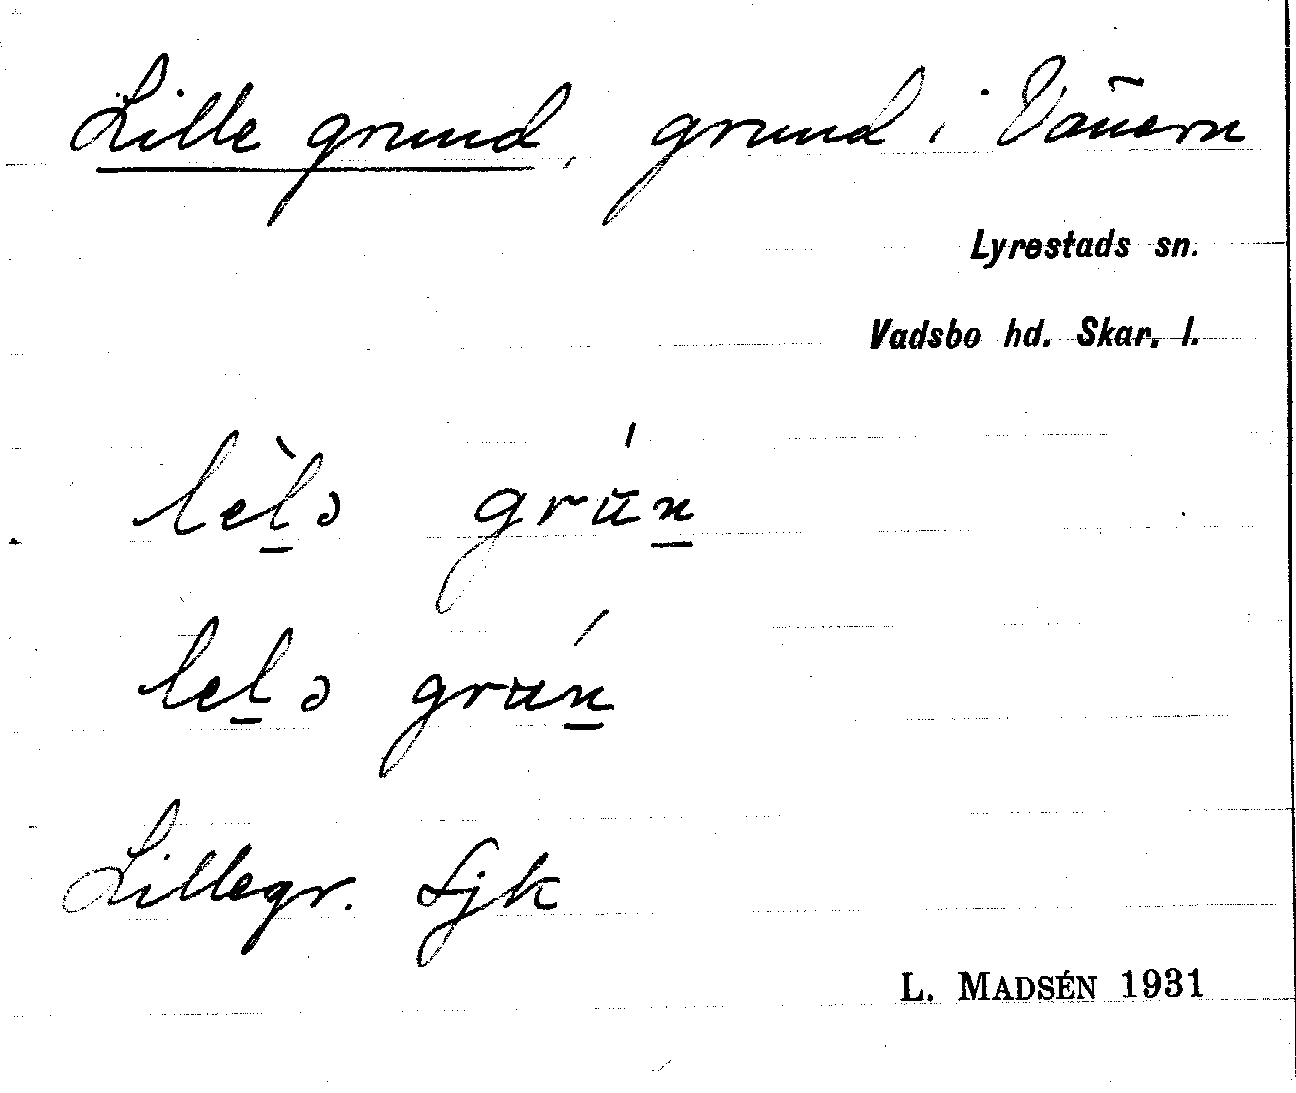 Lille grund, grund i Vänern
Lyrestads sn.
Vadsbo hd. Skar. l.
lèl̠ə grún̠
lel̠ə grún̠
Lillegr. Sjk
L. MADSÉN 1931